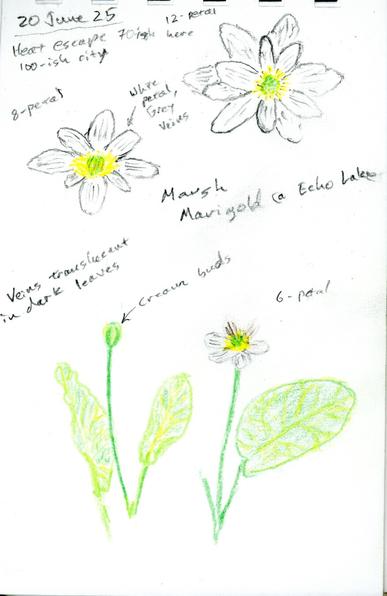 20 June 25
Heat escape 70-ish here
100-ish city
12-petal
8-petal
White
petal,
Grey
Veins
Marsh
Marigold @ Echo Lake
Veins translucent
in dark leaves
cream buds
6-petal